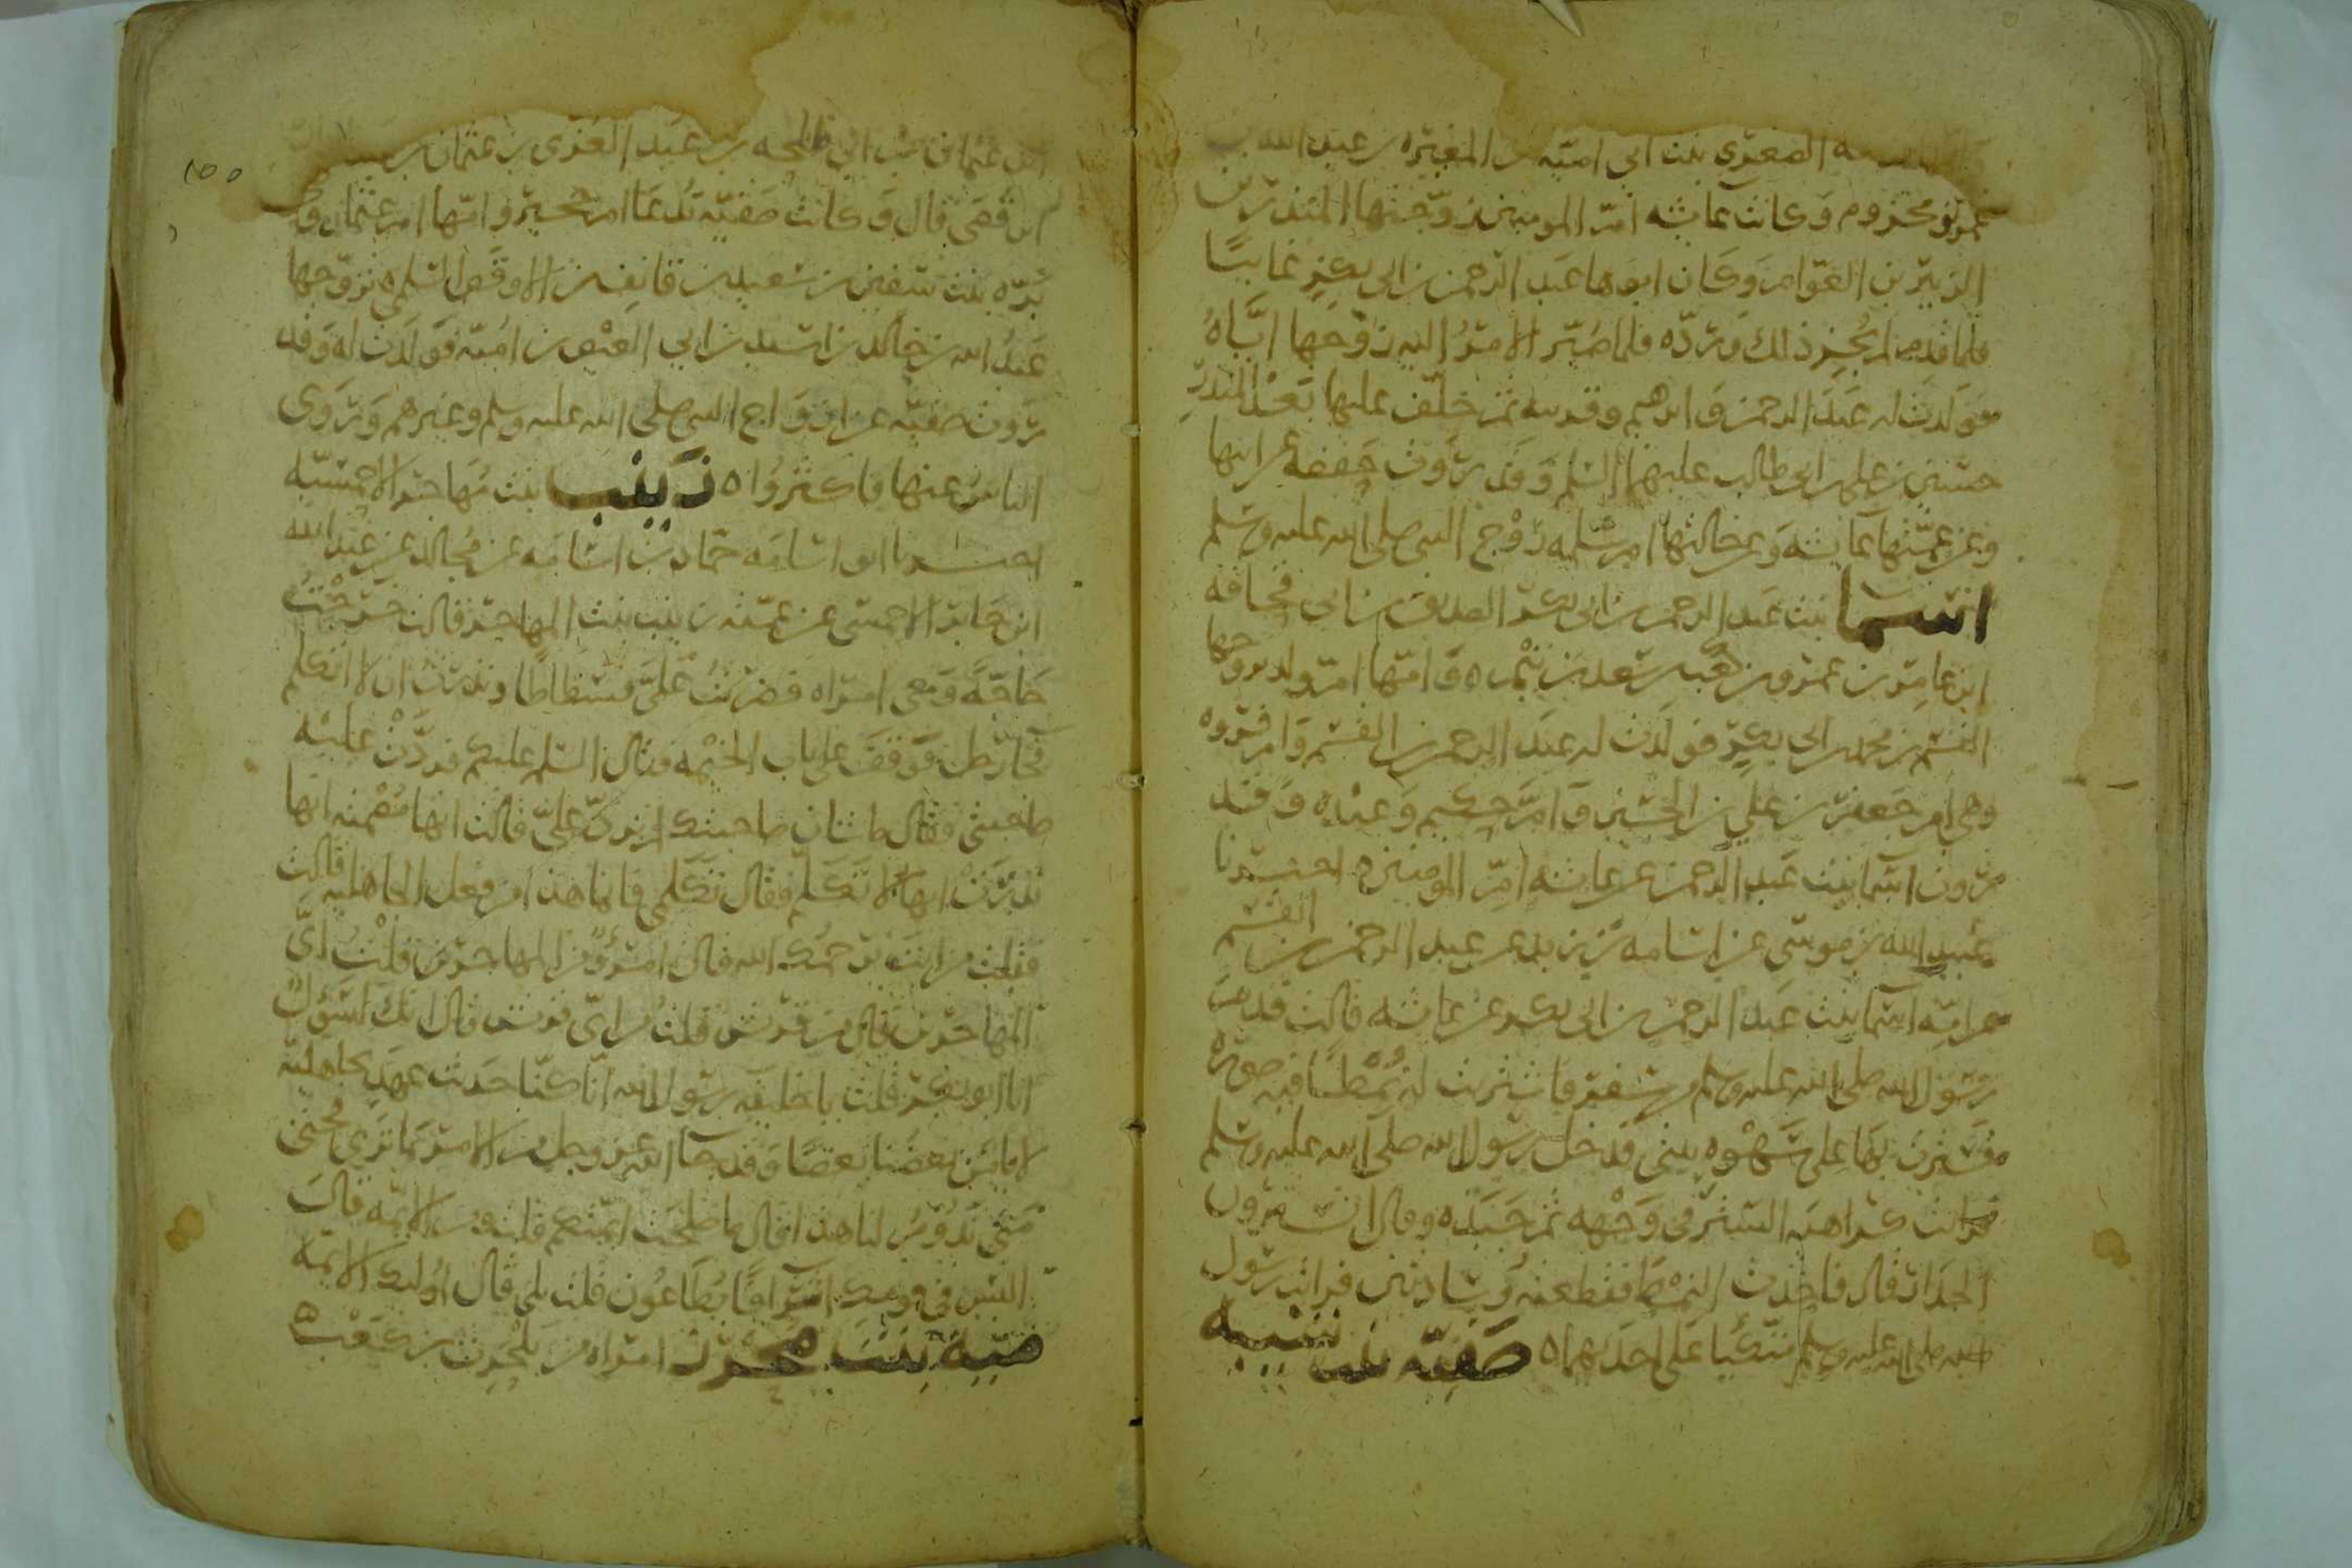 ـه الصغرى بنت ابى اميّه بن المغيره بن عبد الله بن
عمر بن مخزوم وكانت عائشه امّ المومنين زوّجتها المنذر بن
الزبير بن العوّام وكان ابوها عبد الرحمن بن ابى بكرٍ غائبًا
فلما قدم لم يُجِز ذلك وردّه فلما صُيّر الامرُ اليه زوّجها ايّاهُ
فولدت له عبد الرحمن وابرهيم وقريبه ثم خلف عليها بعد المنذر
حسين بن على بن ابى طالب عليهما السلم وقد روت حفصه عن ابيها
وعن عمّتها عائشه وعن خالتها ام سلمه زوج النبى صلى الله عليه وسلم
اسما بنت عبد الرحمن بن ابى بكر الصديق بن ابى قحافه
ابن عامر بن عمرو بن كعب بن سعد بن تيم ه وامّها امّ ولد تزوجها
القسم بن محمد بن ابى بكرٍ فولدت له عبد الرحمن بن القسم وام فروه
وهى ام جعفر بن على بن الحسين وامّ حكيم وعبده وقد
روت اسما بنت عبد الرحمن عن عائشه امّ المومنين ه اخبرنا
عبيد الله بن موسى عن اسامه بن زيد عن عبد الرحمن بن القسم
عن امّه اسما بنت عبد الرحمن بن ابى بكر عن عائشه قالت قدم
رسول الله صلى الله عليه وسلم من سفر فاشتريت له نُمطًا فيه صوره
فسترت بها على سَهْوه بيتى فدخل رسول الله صلى الله عليه وسلم
فرايت كراهيه الستر فى وَجْهه ثم جَبَذه وقال اتسترون
الجدار قال فاخذت النمط فقطعته وسادتين فرايت رسول
الله صلى الله عليه وسلم متكئًا على احدَيهما ه صَفيّه بنت شيبه
ابن عثمان بن ابى طلحه بن عبد العزى بن عثمان بن
ابن قصى قال وكانت صفيّه تُدعَا ام حجير وامّها ام عثمان وهى
برّه بنت سفين بن سعيد بن قانف بن الاوقص السلمى تزوّجها
عبدُ الله بن خالد بن اسيد بن ابى العيص بن اميّه فولدت له وقد
روت صفيّه عن ازواج النبى صلى الله عليه وسلم وغيرهم وروى
الناس عنها فاكثرُوا ه زينب بنت مُهاجر الاحمسيّه
اخبرنا ابو اسامَه حمّاد بن اسامَه عن مُجالد عن عبد الله
ابن جابر الاحمسى عن عمّته زينب بنت المهاجر قالت خرَجْتُ
حاجّةً ومعى امراه فضربتُ علىَّ فسطاطًا ونذرتُ ان لا اتكلم
فجا رجل فوقفَ على باب الخيْمه فقال السلم عليكم فردَّتْ عليه
صاحبتى فقال ما شان صاحبتك لم تردّ علىّ قالت انها مُصْمته انها
نذرَتْ انها لا تتكلم فقال تكلّمى فانما هذا من فعل الجاهليه قالت
فقلت من انت يرحمُك الله قال امرؤٌ من المهاجرين قلتُ اىّ
المهاجرين قال من قريش قلتُ من اىّ قريش قال انك لسَؤُلٌ
انا ابو بكر قلت يا خليفه رسول الله انّا كنّا حدَيث عهدٍ بجاهليّه
لا يامَن بعضُنا بعضًا وقد جا الله عز وجل من الامر بما تَرى فحتّى
متى يَدُوُمُ لنا هذا قال ما صلحَت ايمّتكم قلت ومن الايمّه قال
اليس فى قومك اشرافًا يُطَاعُون قلت بلى قال اولئك الايمّه
بنت امراه من بلحرث بن كعب ه